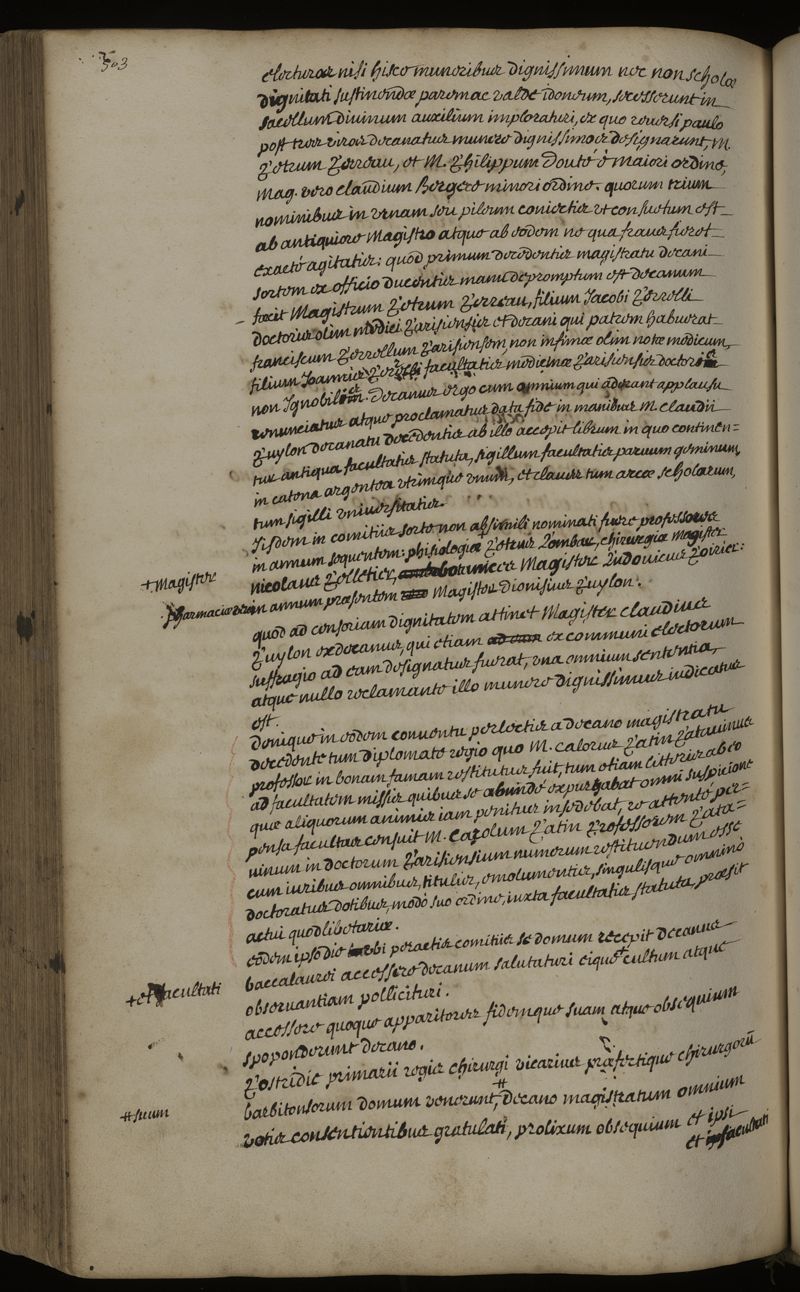 503
electuros nisi hisce muneribus dignissimum nec non scholæ
dignitati sustinendæ param ac valde idoneum, secesserunt in
sacellum divinum auxilium imploraturi, ex quo reversi paulo
post tres viros decanatus munere dignissimos designarunt, M.
Petrum Perreau, et M. Philippum Douté è maiori ordine,
Mag. vero claudium Berger è minori ordine. quorum trium
nominibus in urnam seu pileum coniectis ut consuetum est
ab antiquiore Magistro atque ab eodem ne qua fraus fieret
exactè agitatis: quod primum decedentis magistratu decani
sortem ex officio ducentis manu depromptum est decanum
fecit Magistrum Petrum Perreau, filium Jacobi Perrelli
doctoris olim medici Parisiensis et decani qui patrem habuerat
franciscum Perrellum Parisiensem non infimæ olim notæ medicum,
filium Joannis Perrelli facultatis medicinæ Parisiensis doctoris
non Ignobilis. Decanus ergo cum omnium qui aderant applausu
renunciatus atque proclamatus data fide in manibus M. claudii
Puylon decanatu decedentis ab illo accepit librum in quo continen=
tur antiqua facultatis statuta, sigillum facultatis parvum geminum,
in catena argentea utrimque unum, et claves tum arcæ scholarum,
tum sigilli universitatis.
Iisdem in comitiis sorte non absimili nominati fuere professores
in annum sequentem: phisiologiæ Petrus Lombar, chirurgiæ magister
+ Magister
nicolaus Pelletier, botanices Magister Ludovicus Poirier:
Pharmaciæ vero in annum præsentem Magister Dionisius Puylon.
quod ad censoriam dignitatem attinet Magister claudius
Puylon exdecanus, qui etiam ex communi electorum
suffragio ad eam designatus fuerat, una omnium sententia,
atque nullo reclamante illo munere dignissimus iudicatus
est.
Denique in eodem conventu perlectis a decano magistratu
decedente tum diplomate regio quo M. calorus Patin Patavinus
professor in bonam famam restitutus fuit, tum etiam litteris ab eo
ad facultatem missis quibus se abundè expurgabat omni suspicione
quæ aliquorum animis iam penitus insedebat, re attentè per=
pensa facultas censuit M. Carolum Patin Professorem Pata=
vinum in doctorum Parisiensium numerum restituendum esse
cum iuribus omnibus, titulis, emolumentis, singulisque omnino
doctoratus dotibus, modò suo ordine, iuxta facultatis statuta, præsit
actui quodlibetariæ.
eodem ipso die peractis comitiis se domum recepit decanus
+ et facultati
baccalaurei accessere decanum salutaturi eique + cultum atque
observantiam polliciturí.
accessere quoque apparitores fidemque suam atque obsequium
spoponderunt decano.
Postridie primarii regis chirurgi vicarius præfectique chirurgorū
# suum
barbitonsorum domum venerunt, # decano magistratum omnium
votis consentientibus gratulati, prolixum obsequium et ipsi
et facultati